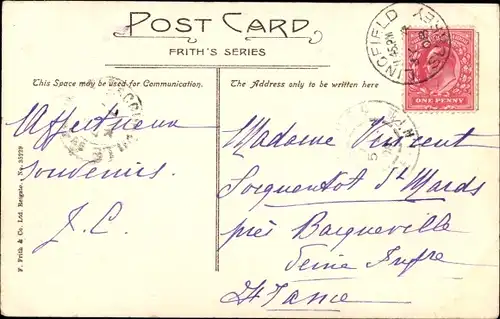 POST CARD
FRITH'S SERIES
This Space may be used for Communication.
The Address only to be written here
LINGFIELD
SURREY
ONE PENNY
Affectueux
souvenirs
J. C.
Madame Vincent
Sorquentot St Mards
près Bacqueville
Seine Infre
France
F. Frith & Co. Ltd. Reigate. No. 53229